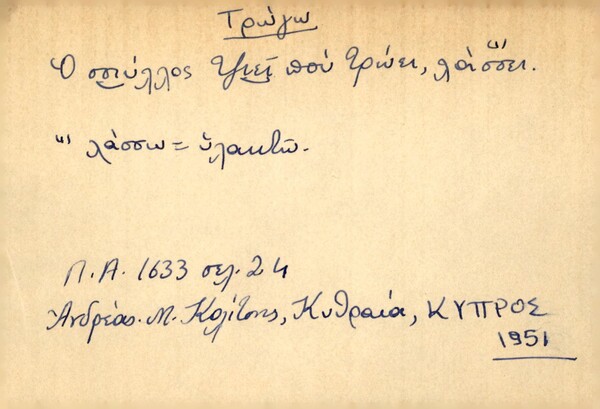 Τρώγω
Ὁ σσιύλλος τζιεῖ πού τρώει, λάσσει. (1)
(1) λάσσω = ὑλακτῶ.
Π.Α. 1633 σελ. 24
Ἀνδρέας Μ. Κυθραία, ΚΥΠΡΟΣ
1951